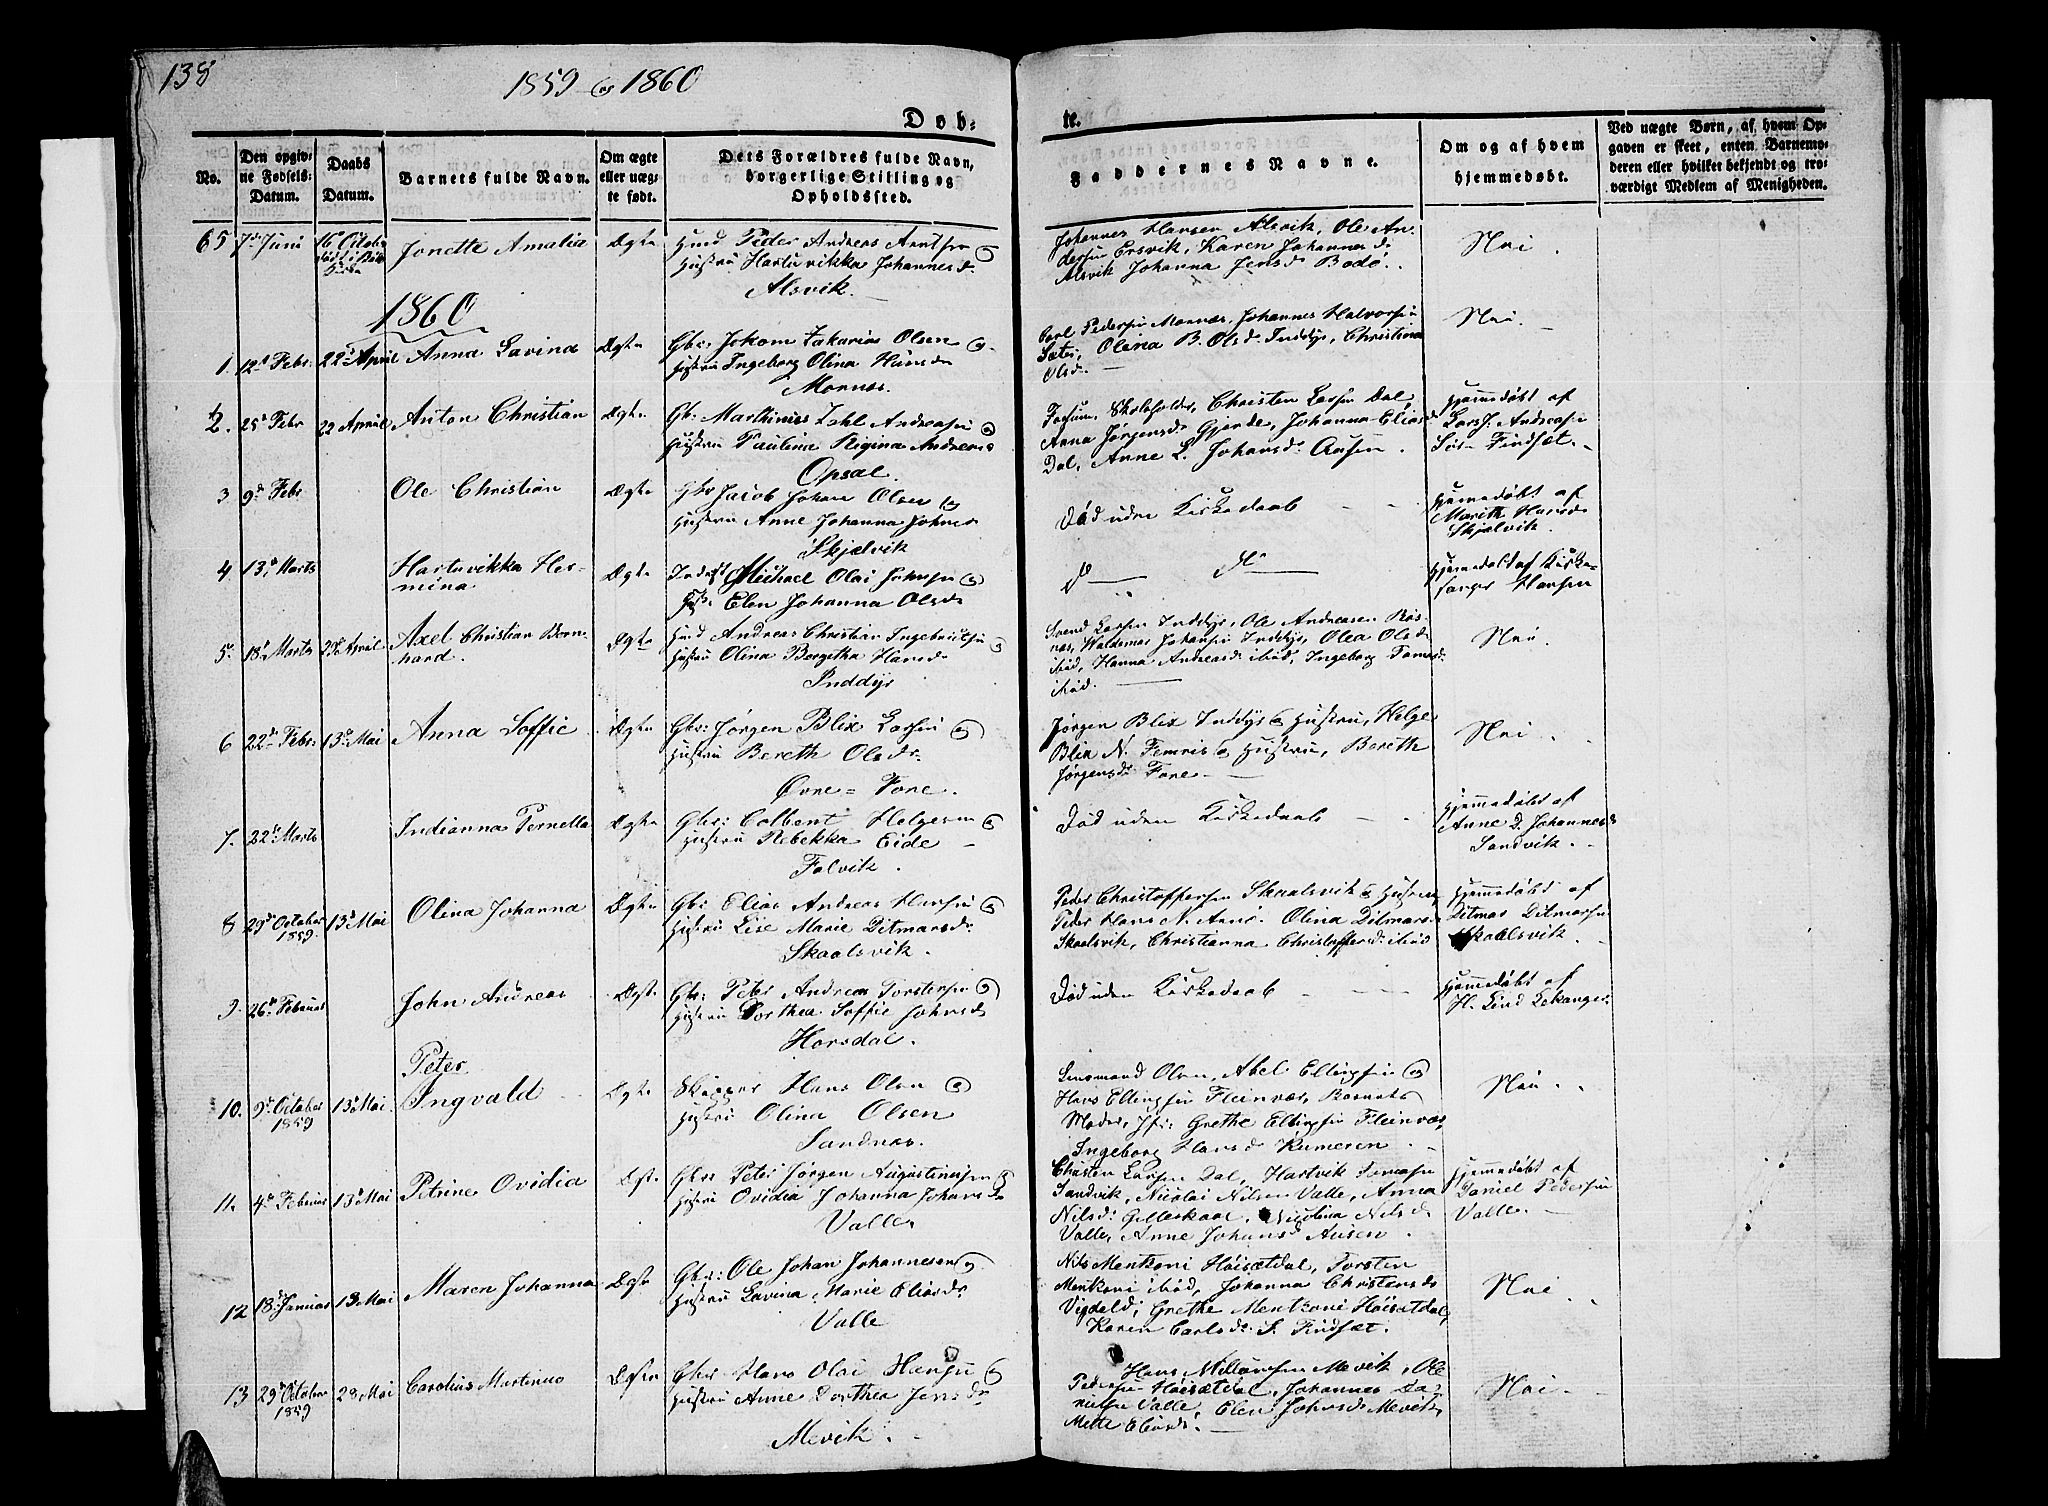 138
1859 og 1860
Døb-
te.
No.
Den opgiv-
ne Fødsels-
Datum.
Daabs
Datum.
Barnets fulde Navn.
Om ægte
eller uæg-
te født.
Dets Forældres fulde Navn,
borgerlige Stilling og
Opholdssted.
Faddernes Navne.
Om og af hvem
hjemmedøbt.
Ved uægte Børn, af hvem Op-
gaven er skeet, enten Barnemo-
deren eller hvilket bekjendt og tro-
værdigt Medlem af Menigheden.
65
7de Juni
16 Octob
Jonette Amalia
Ægte
Huusd Peder Andreas Arntsen og
Hustru Hartvikka Johannesd.
Alsvik.
Johannes Hansen Alsvik, Ole An-
dersen Ersvik, Karen Johannesd
Alsvik Johanna Jensd. Bodø.
Nei.
1860
1.
12te Febr.
22de April
Anna Lavina
Ægte
Gbr: Jokom Zakarias Olsen og
Hustru Ingeborg Olina Hansd
Mornæs.
Carl Pedersen Mornæs, Johannes Halvorsen
Sæter, Olina B. Olsd. Inddyr, Christina
Olsd.
Nei.
2.
25de Febr
22 April
Anton Christian
Ægte
Gb. Marthinus Zahl Andreasen og
Hustru Paulina Regina Andreas
Opsal.
Skoleholder, Christen Larsen Dal,
Anna Jørgensd. Gjerde, Johanna Eliasd
Dal, Anne L. Johansd. Ausen.
Hjemmedøbt af
Lars J. Andreasen
Sør-Findsæt.
3
9de Febr
Ole Christian
Ægte
Gbr Jacob Johan Olsen og
Hustru Anne Johanna Johns
Skjælvik
Død uden Kirkedaab
Hjemmedøbt af
Marith Hansd
Skjælvik.
4
13de Marts
Hartvikka Her-
mina.
Ægte
Inds Michael Olai Johnsen og
Hust. Elen Johanna Olsd
do do
Hjemmedøbt af Kirke-
sanger Hansen
5.
18de Marts
29de April
Axel Christian Bern-
hard.
Ægte
Huusd Andreas Christian Ingebrigtsen
Hustru Olina Bergitha Hansd
Inddyr
Svend Larsen Inddyr, Ole Andreasen Røs-
næs, Waldemar Johansen Inddyr, Olea Olsd
ibid, Hanna Andreasd. ibid, Ingeborg
ibid.
Nei.
6
22de Febr.
13de Mai
Anna Soffie
Ægte
Gbr: Jørgen Blix Larsen og
Hustru Bereth Olsdr.
Øvre = Fore.
Jørgen Blix Inddyr og Hustru, Helge
Blix N. Femris og Hustru, Bereth
Jørgensd. Fore.
Nei.
7.
22de Marts
Indianna Pernella
Ægte
Gbr: Colbent Helgesen og
Hustru Rebekka Eide
Falvik.
Død uden Kirkedaab
Hjemmedøbt af
Anne D. Johannesd
Sandvik.
8
29de October
1859.
13de Mai
Olina Johanna
Ægte
Gb: Elias Andreas Hansen og
Hustru Lise Marie Ditmarsdr.
Skaalsvik.
Peder Christoffersen Skaalsvik og Hustru,
Peder Hans N. Arnø. Olina Ditmarsd
Skaalsvik, Christianna Christoffersd. ibid
Hjemmedøbt af
Ditmar Ditmarsen
Skaalsvik.
9.
26de Februar
John Andreas
Ægte
Gbr: Peter Andreas Torstensen og
Hustru Dorthea Soffie Johnsd
Horsdal.
Død uden Kirkedaab
Hjemmedøbt af
H. Lind Lekanger.
10.
9de October
1859
13de Mai
Peter
Ingvald
Ægte
Skipper Hans Olsen og
Hustru Olina Olsen
Sandnes.
Lensmand Olsen, Abel Ellingsen og
Hans Ellingsen Fleinvær, Barnets
Moder, Jfr: Grethe Ellingsen Fleinvær,
Ingeborg Hansd
Nei.
11.
4de Februar
13de Mai
Petrine Ovidia
Ægte
Gbr Peter Jørgen Augustinusen og
Hustru Ovidia Johanna Johansd
Valle
Christen Larsen Dal, Hartvik Jonasen
Sandvik, Nicolai Nilsen Valle, Anna
Nilsd: Gilleskaal, Nicolina Nilsd
Valle, Anne Johansd Ausen.
Hjemmedøbt af
Daniel Pedersen
Valle.
12
18de Januar
13 Mai
Maren Johanna
Ægte
Gbr: Ole Johan Johannesen og
Hustru Lavina Marie Eliasdr
Valle
Nils Mentzoni Høisætdal, Torsten
Mentzoni ibid, Johanna Christensd
Vigdal, Grethe Mentzoni Høisætdal,
Karen Carlsd. S. Findsæt.
Nei.
13
29de October
1859
28 Mai
Carolius Martinus
Ægte
Gbr Hans Olai Hansen og
Hustru Anne Dorthea Jensdr
Mevik.
Hans Mevik, Ole
Pedersen Høisætdal, Johannes Da-
nielsen Valle, Elen Johnsd. Mevik,
Mette Eliasd.
Nei.